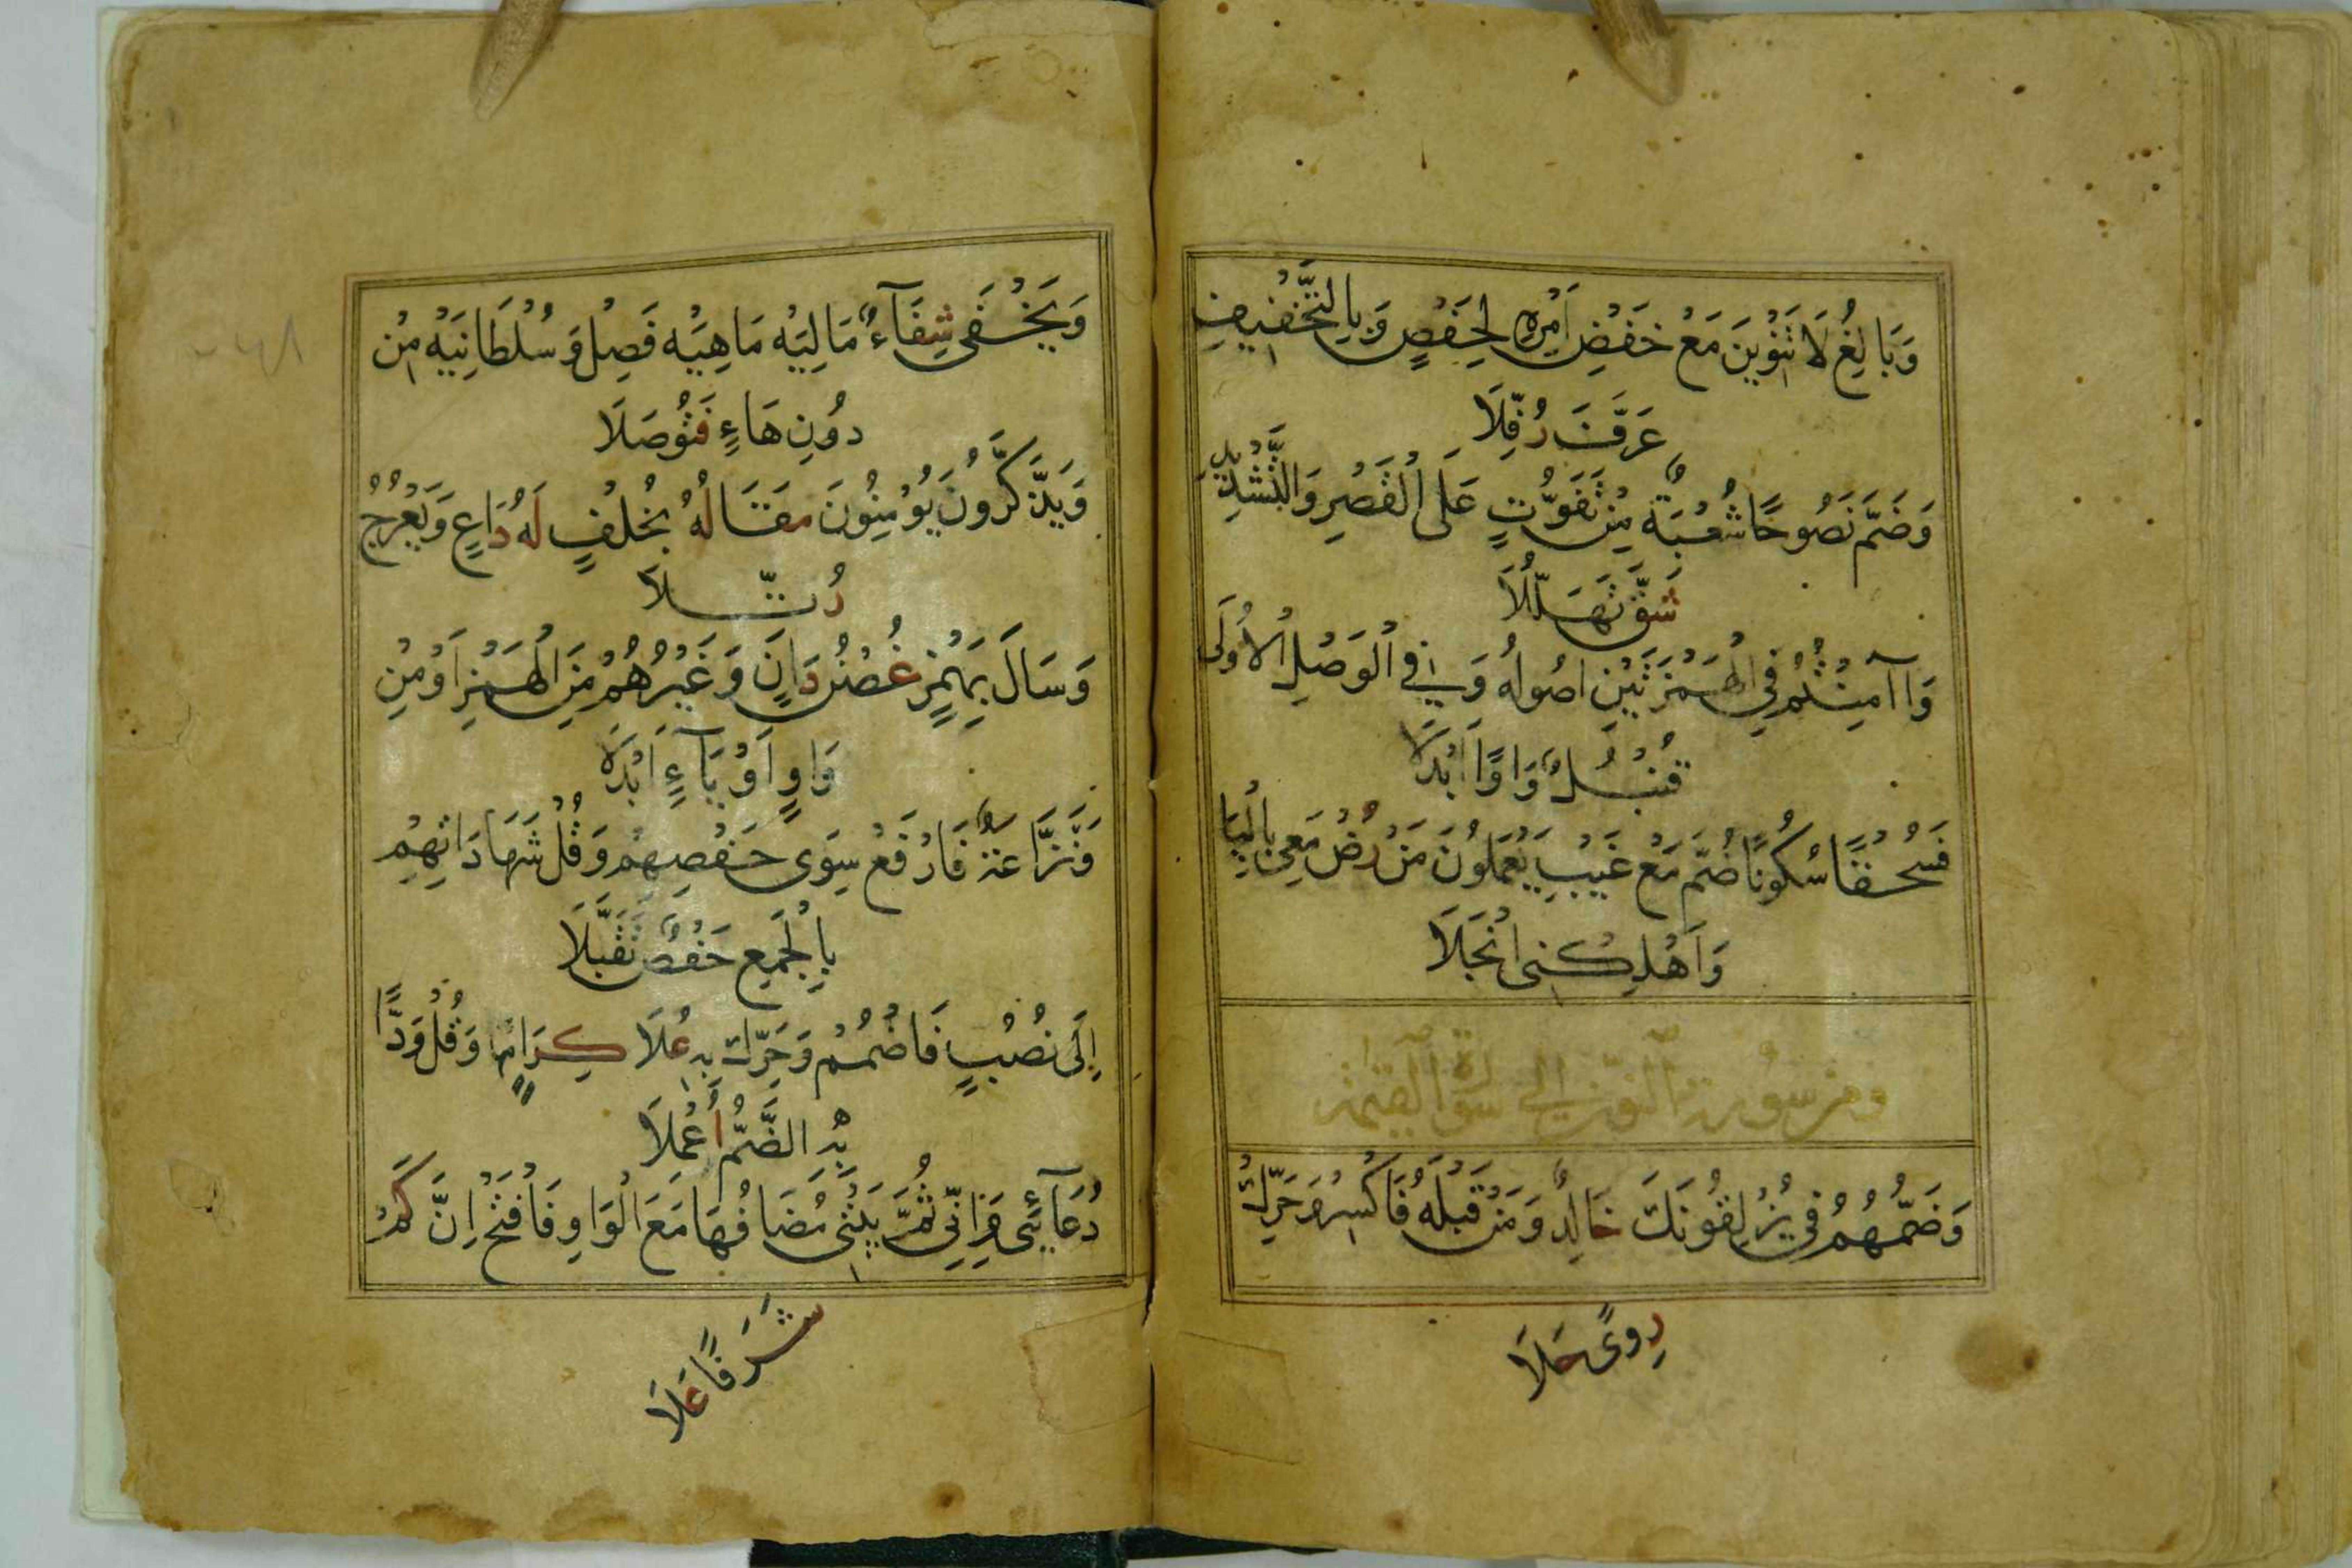 وَبَالِغُ لَا تَنْوِينَ مَعْ خَفْضِ اَمْرِهِ لِحَفْصٍ وَبِالتَّخْفِيفِ
عَرَّفَ رُفِّلَا
وَضَمَّ نَصُوحًا شُعْبَةٌ مِنْ تَفَوُّتٍ عَلَى الْقَصْرِ وَالتَّشْدِيدِ
شَقَّ تَهَلُّلَا
وَاآمِنْتُمُ فِي الْهَمْزَتَيْنِ اُصُولُهُ وَفِي الْوَصْلِ الْاُولَى
قُنْبُلٌ وَاوًا اَبْدَلَا
فَسُحْقًا سُكُونًا ضُمَّ مَعْ غَيْبِ يَعْلَمُونَ مَنْ رُضْ مَعِي بِالْيَا
وَاَهْلَكَنِي انْجَلَا
ومن سورة ن الى سورة القيمة
وَضَمُّهُمُ فِي يَزْلِقُونَكَ خَالِدٌ وَمَنْ قَبْلَهُ فَاكْسِرْ وَحَرِّكْ
رِوىً حَلَا
وَيَخْفَى شِفَآءٌ مَالِيَهْ مَاهِيَهْ فَصِلْ وَسُلْطَانِيَهْ مِنْ
دُونِ هَاءٍ فَتُوصَلَا
وَيَذَّكَّرُونَ يُوْمِنُونَ مَقَالُهُ بِخُلْفٍ لَهُ دَاعٍ وَيَعْرُجُ
رُتِّلَا
وَسَالَ بِهَمْزٍ غُصْنُ دَانٍ وَغَيْرُهُمْ مِنَ الْهَمْزِ اَوْ مِنْ
وَاوٍ اَوْ يَآءٍ اَبْدَلَا
وَنَزَّاعَةٌ فَارْفَعْ سِوَى حَفْصِهِمْ وَقُلْ شَهَادَاتِهِمْ
بِالْجَمْعِ حَفْصٌ تَقَبَّلَا
اِلَى نُصُبٍ فَاضْمُمْ وَحَرِّكْ بِهِ عُلَا كِرَامٍ وَقُلْ وَدًّا
بِهِ الضَّمُّ أُعْمِلَا
دُعَآئِي وَاِنِّي ثُمَّ بَيْتِي مُضَافُهَا مَعَ الْوَاوِ فَافْتَحْ اِنَّ كَمْ
شَرَفًا عَلَا